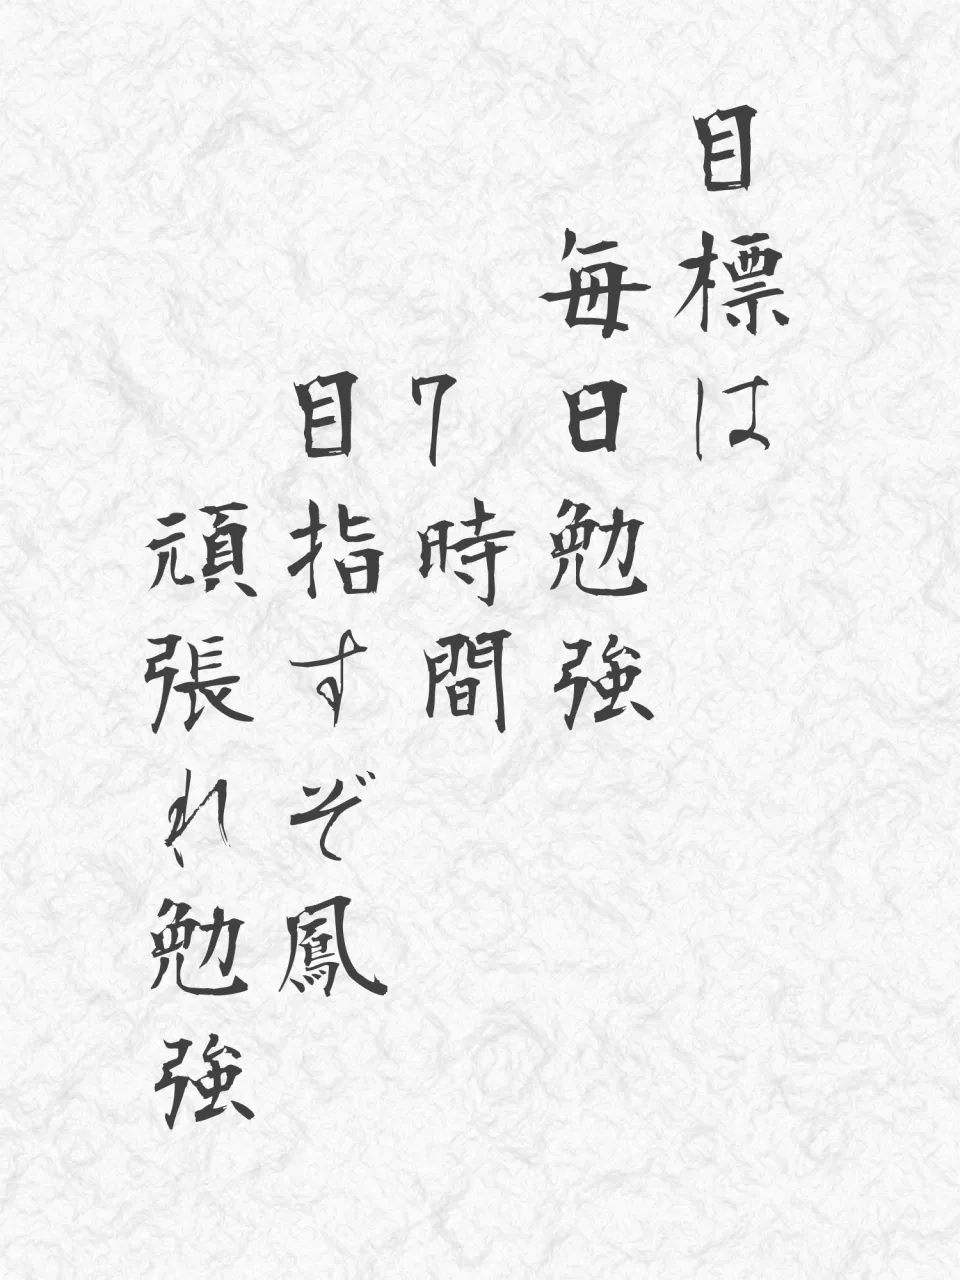 目標は
毎日勉強
7時間
目指すぞ鳳
頑張れ勉強